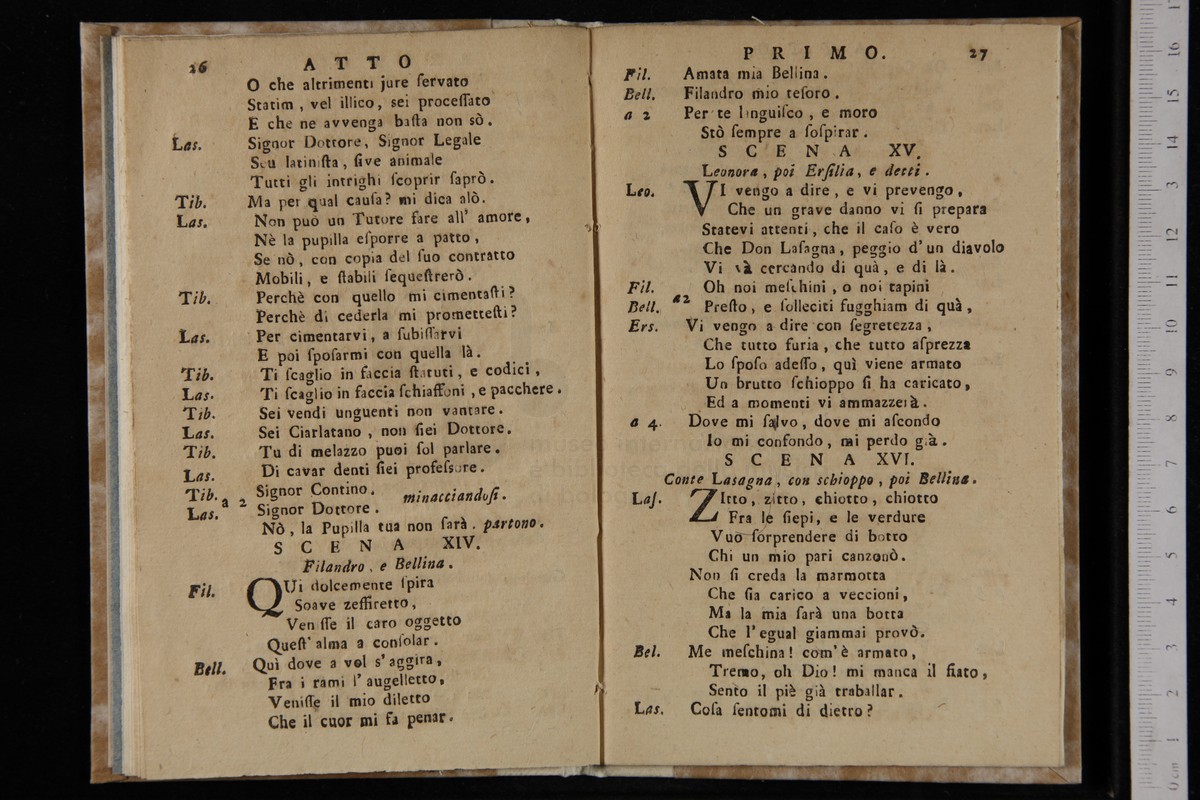 26 ATTO
O che altrimenti jure ſervato
Statim, vel illico, sei proceſſato
E che ne avvenga baſta non sò.
Las. Signor Dottore, Signor Legale
Seu latiniſta, ſive animale
Tutti gli intrighi ſcoprir ſaprò.
Tib. Ma per qual cauſa? mi dica alò.
Las. Non può un Tutore fare all' amore,
Nè la pupilla eſporre a patto,
Se nò, con copia del ſuo contratto
Mobili, e ſtabili ſequeſtrerò.
Tib. Perchè con quello mi cimentaſti?
Perchè di cederla mi prometteſti?
Las. Per cimentarvi, a ſubiſſarvi
E poi ſpoſarmi con quella là.
Tib. Ti ſcaglio in faccia ſtatuti, e codici,
Las. Ti ſcaglio in faccia ſchiaffoni, e pacchere.
Tib. Sei vendi unguenti non vantare.
Las. Sei Ciarlatano, non ſiei Dottore.
Tib. Tu di melazzo puoi ſol parlare.
Las. Di cavar denti ſiei profeſsore.
Tib. a 2 Signor Contino. minacciandoſi.
Las. Signor Dottore.
Nò, la Pupilla tua non ſarà. partono.
SCENA XIV.
Filandro, e Bellina.
Fil. QUi dolcemente ſpira
Soave zeffiretto,
Veniſſe il caro oggetto
Queſt' alma a conſolar.
Bell. Quì dove a vol s' aggira,
Fra i rami l' augelletto,
Veniſſe il mio diletto
Che il cuor mi fa penar.
PRIMO. 27
Fil. Amata mia Bellina.
Bell. Filandro mio teſoro.
a 2 Per te linguiſco, e moro
Stò ſempre a ſoſpirar.
SCENA XV.
Leonora, poi Erſilia, e detti.
Leo. VI vengo a dire, e vi prevengo,
Che un grave danno vi ſi prepara
Statevi attenti, che il caſo è vero
Che Don Laſagna, peggio d' un diavolo
Vi và cercando di quà, e di là.
Fil. Oh noi meſchini, o noi tapini
Bell. a2 Preſto, e ſolleciti fugghiam di quà,
Ers. Vi vengo a dire con ſegretezza,
Che tutto furia, che tutto aſprezza
Lo ſpoſo adeſſo, quì viene armato
Un brutto ſchioppo ſi ha caricato,
Ed a momenti vi ammazzerà.
a 4. Dove mi ſalvo, dove mi aſcondo
Io mi confondo, mi perdo già.
SCENA XVI.
Conte Lasagna, con schioppo, poi Bellina.
Laſ. ZItto, zitto, chiotto, chiotto
Fra le ſiepi, e le verdure
Vuò ſorprendere di botto
Chi un mio pari canzonò.
Non ſi creda la marmotta
Che ſia carico a veccioni,
Ma la mia ſarà una botta
Che l' egual giammai provò.
Bel. Me meſchina! com' è armato,
Tremo, oh Dio! mi manca il fiato,
Sento il piè già traballar.
Las. Coſa ſentomi di dietro?